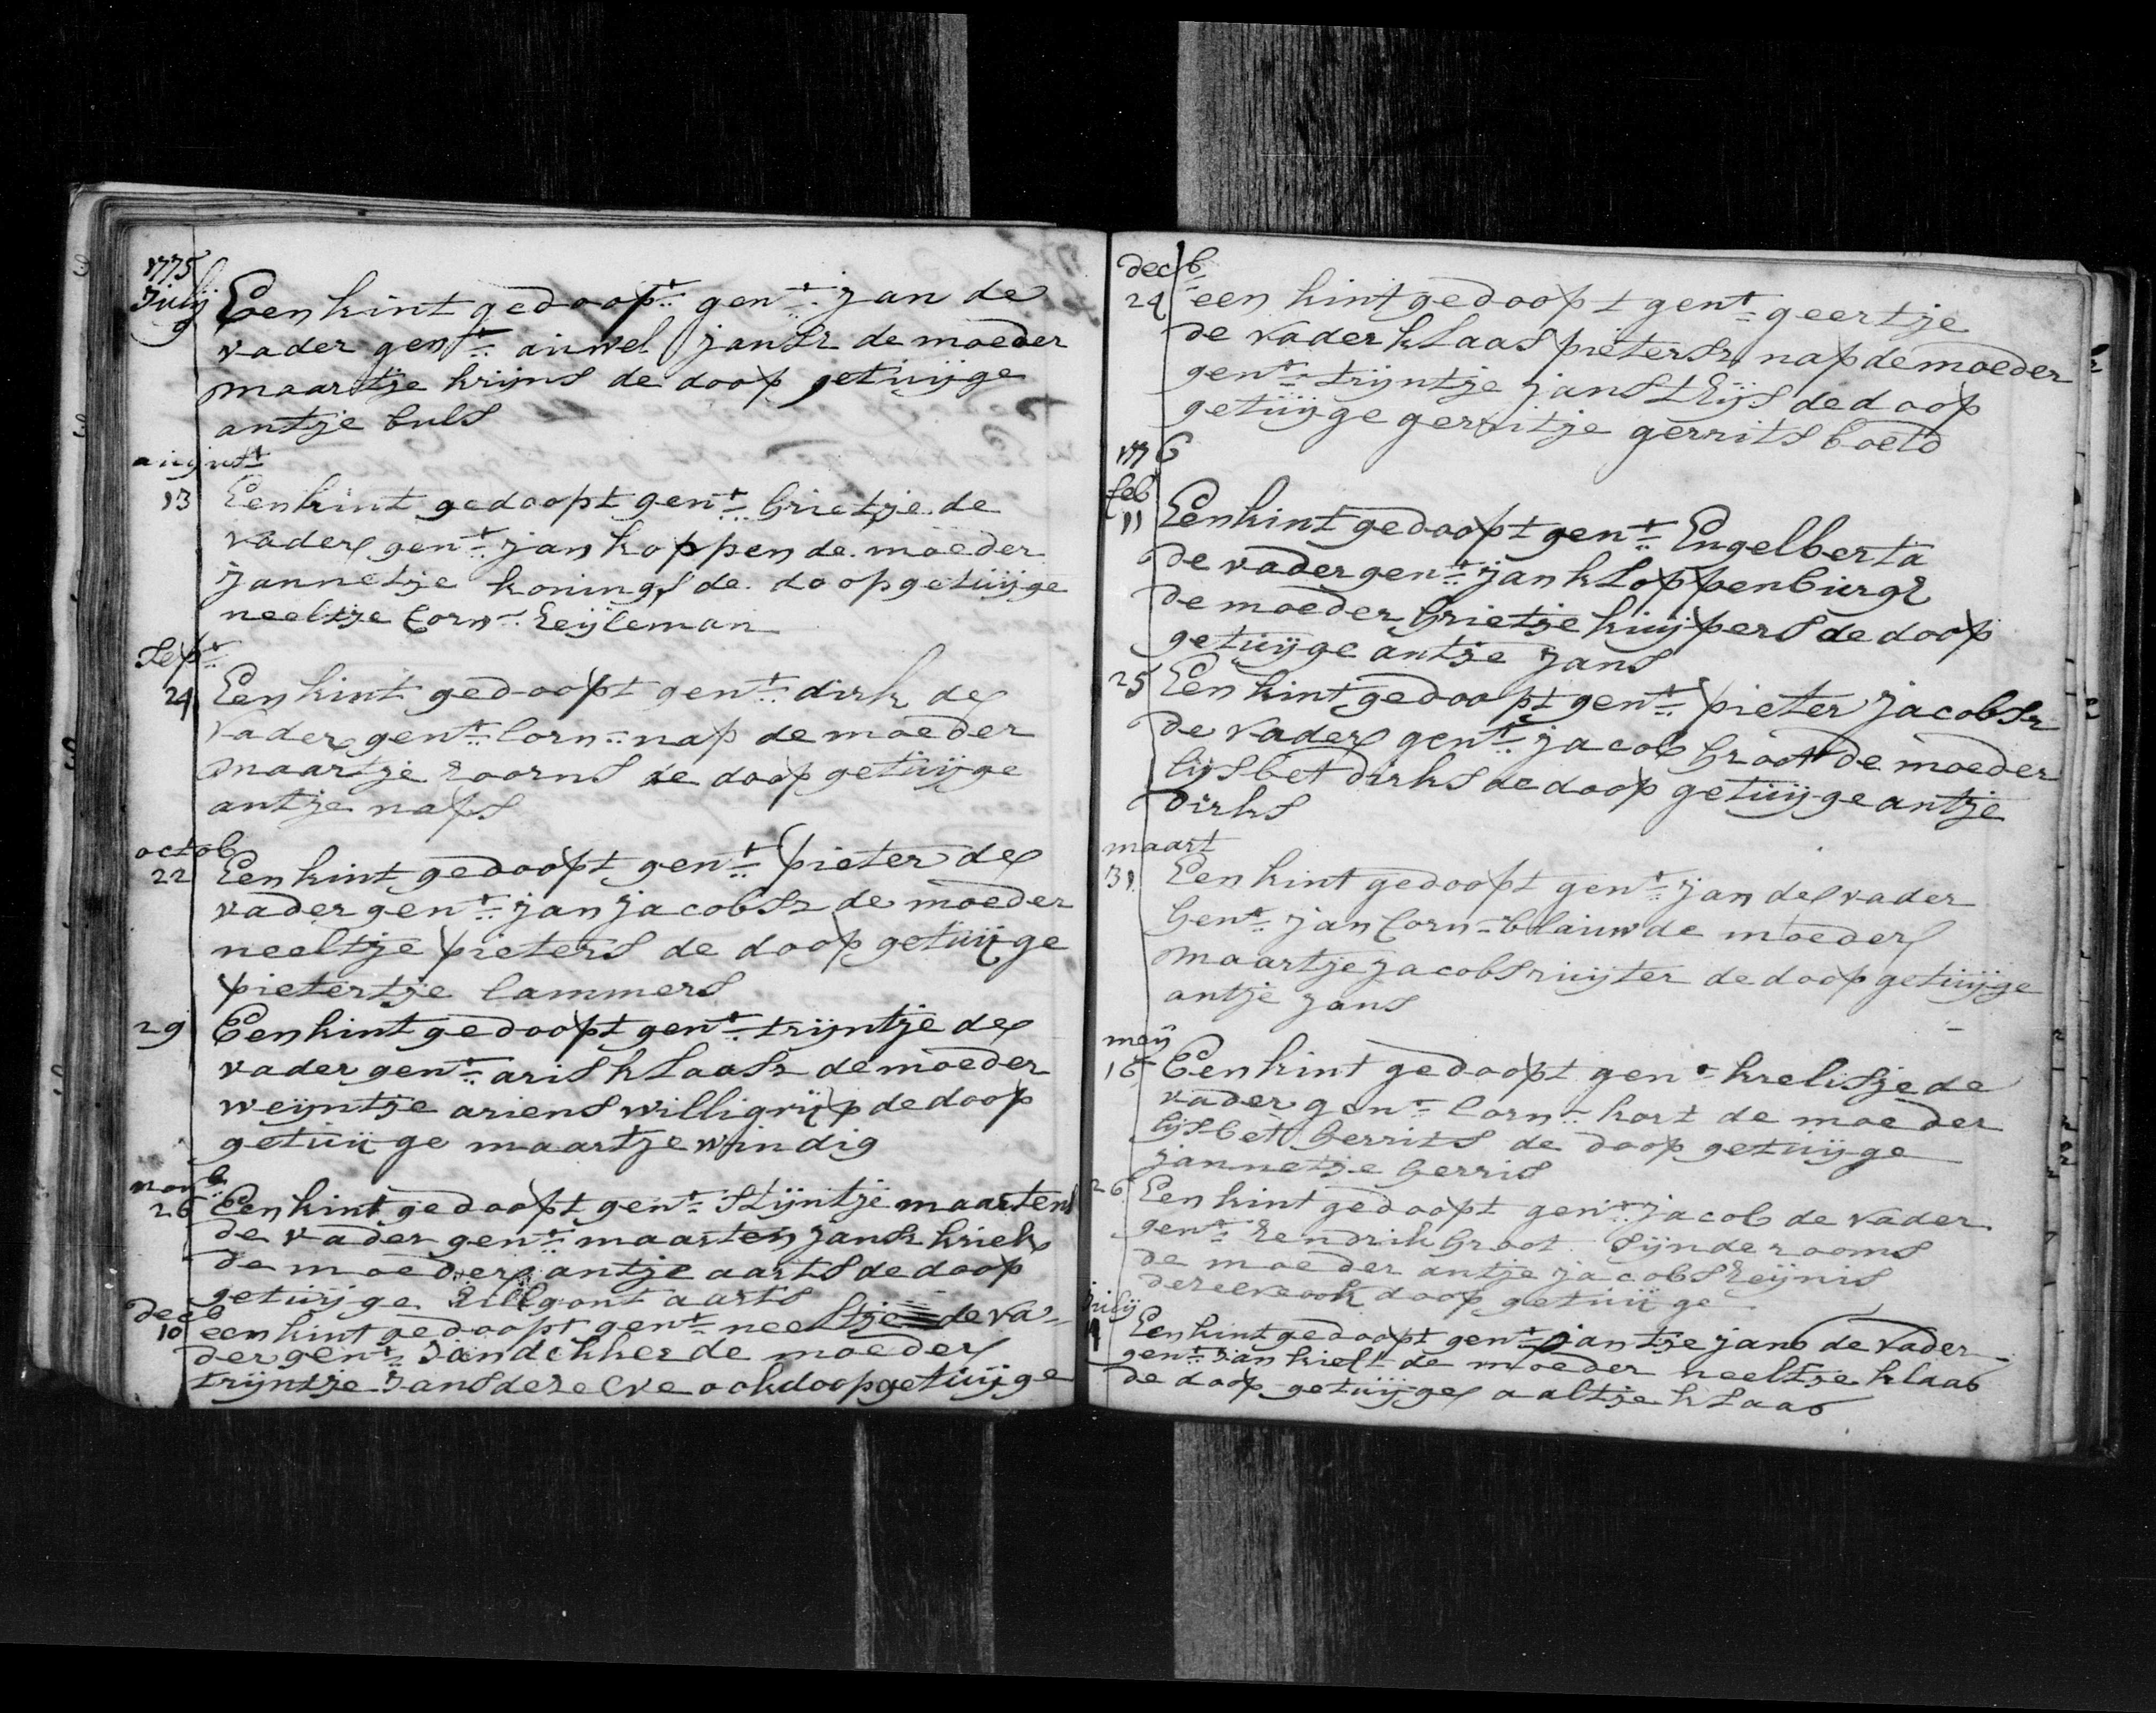 1775
Julij
9 Een kint gedoopt gen:t jan de
vader gen:t auwel jansz de moeder
maartje krijns de doop getuijge
antje buls
august
13 Een kint gedoopt gen:t grietje de
vader gen:t jan koppen de moeder
jannetje konings de doop getuijge
neeltje Corn:s Heijleman
Sept:
24 Een kint gedoopt gen:t dirk de
Vader gen:t Corn:s nap de moeder
maartje hoorns de doop getuijge
antje naps
octob
22 Een kint gedoopt gen:t pieter de
vader gen:t jan jacobsz de moeder
neeltje pieters de doop getuijge
pietertje lammers
29 Een kint gedoopt gen:t trijntje de
vader gen:t aris klaasz de moeder
weijntje ariens willigrijp de doop
getuijge maartje windig
novb
26 Een kint gedoopt gen:t Stijntje maartens
de vader gen:t maarten jansz kriek
de moeder antje aarts de doop
getuijge Hillgont aarts
decb
10 een kint gedoopt gen:t neeltje de va-
der gen:t Jan dekker de moeder
trijntje Jans dezelve ook doop getuijge
decb
24 een kint gedoopt gen:t geertje
de vader klaas pietersz nap de moeder
gen:t trijntje jans thijs de doop
getuijge gerritje gerrits boeld
1776
feb
11 Een kint gedoopt gen:t Engelberta
de vader gen:t jan kloppenburgh
de moeder grietje kuijpers de doop
getuijge antje Jans
25 Een kint gedoopt gen:t pieter jacobsz
de vader gen:t jacob groot de moeder
lijsbet dirks de doop getuijge antje
dirks
maart
31 Een kint gedoopt gen:t jan de vader
Gen:t jan Corn:s blauw de moeder
maartje jacobs ruijter de doop getuijge
antje Jans
meij
16 Een kint gedoopt gen:t krelisje de
vader gen:t Corn:s kort de moeder
lijsbet Gerrits de doop getuijge
Jannetje Gerris
26 Een kint gedoopt gen:t jacob de vader
gen:t Hendrik Groot Sijnde rooms
de moeder antje jacobs Heijnis
deselve ook doop getuijge
Julij
14 Een kint gedoopt gen:t jantje jans de vader
gen:t Jan kieft de moeder neeltje klaas
de doop getuijge aaltje klaas